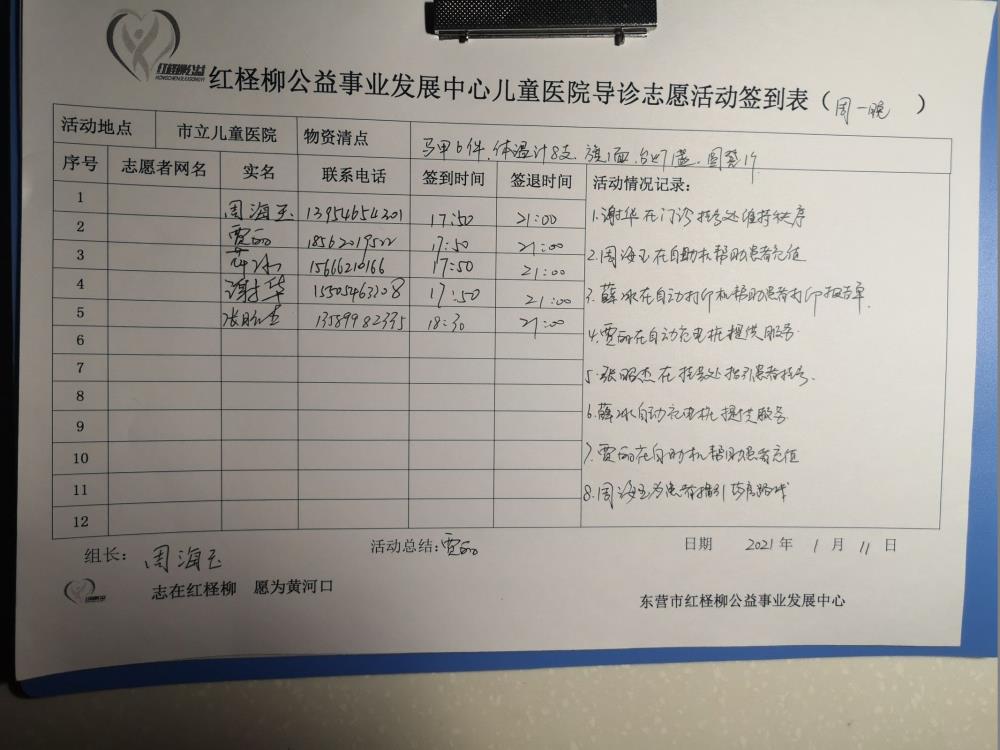 红柽柳公益
红柽柳公益事业发展中心儿童医院导诊志愿活动签到表（周一晚）
活动地点 市立儿童医院 物资清点 马甲6件 体温计8支 旗1面 台灯1盏
序号 志愿者网名 实名 联系电话 签到时间 签退时间 活动情况记录：
1 周海玉 13954654201 17:50 21:00
2 贾丽 17:50 21:00
3 15666210166 17:50 21:00
4 谢华 17:50 21:00
5 13589982335 18:30 21:00
6
7
8
9
10
11
12
1.谢华在门诊挂号处维持秩序
2.周海玉在自助机帮助患者充值
3.薛冰在自动打印机帮助患者打印报告单
4.贾丽在自动充电桩提供服务
5.张昭杰在挂号处指引患者挂号.
6.薛冰自动充电桩提供服务
7.贾丽在自助机帮助患者充值
8.周海玉为患者指引
组长：周海玉 活动总结：贾丽 日期 2021年 1月 11日
志在红柽柳 愿为黄河口
东营市红柽柳公益事业发展中心